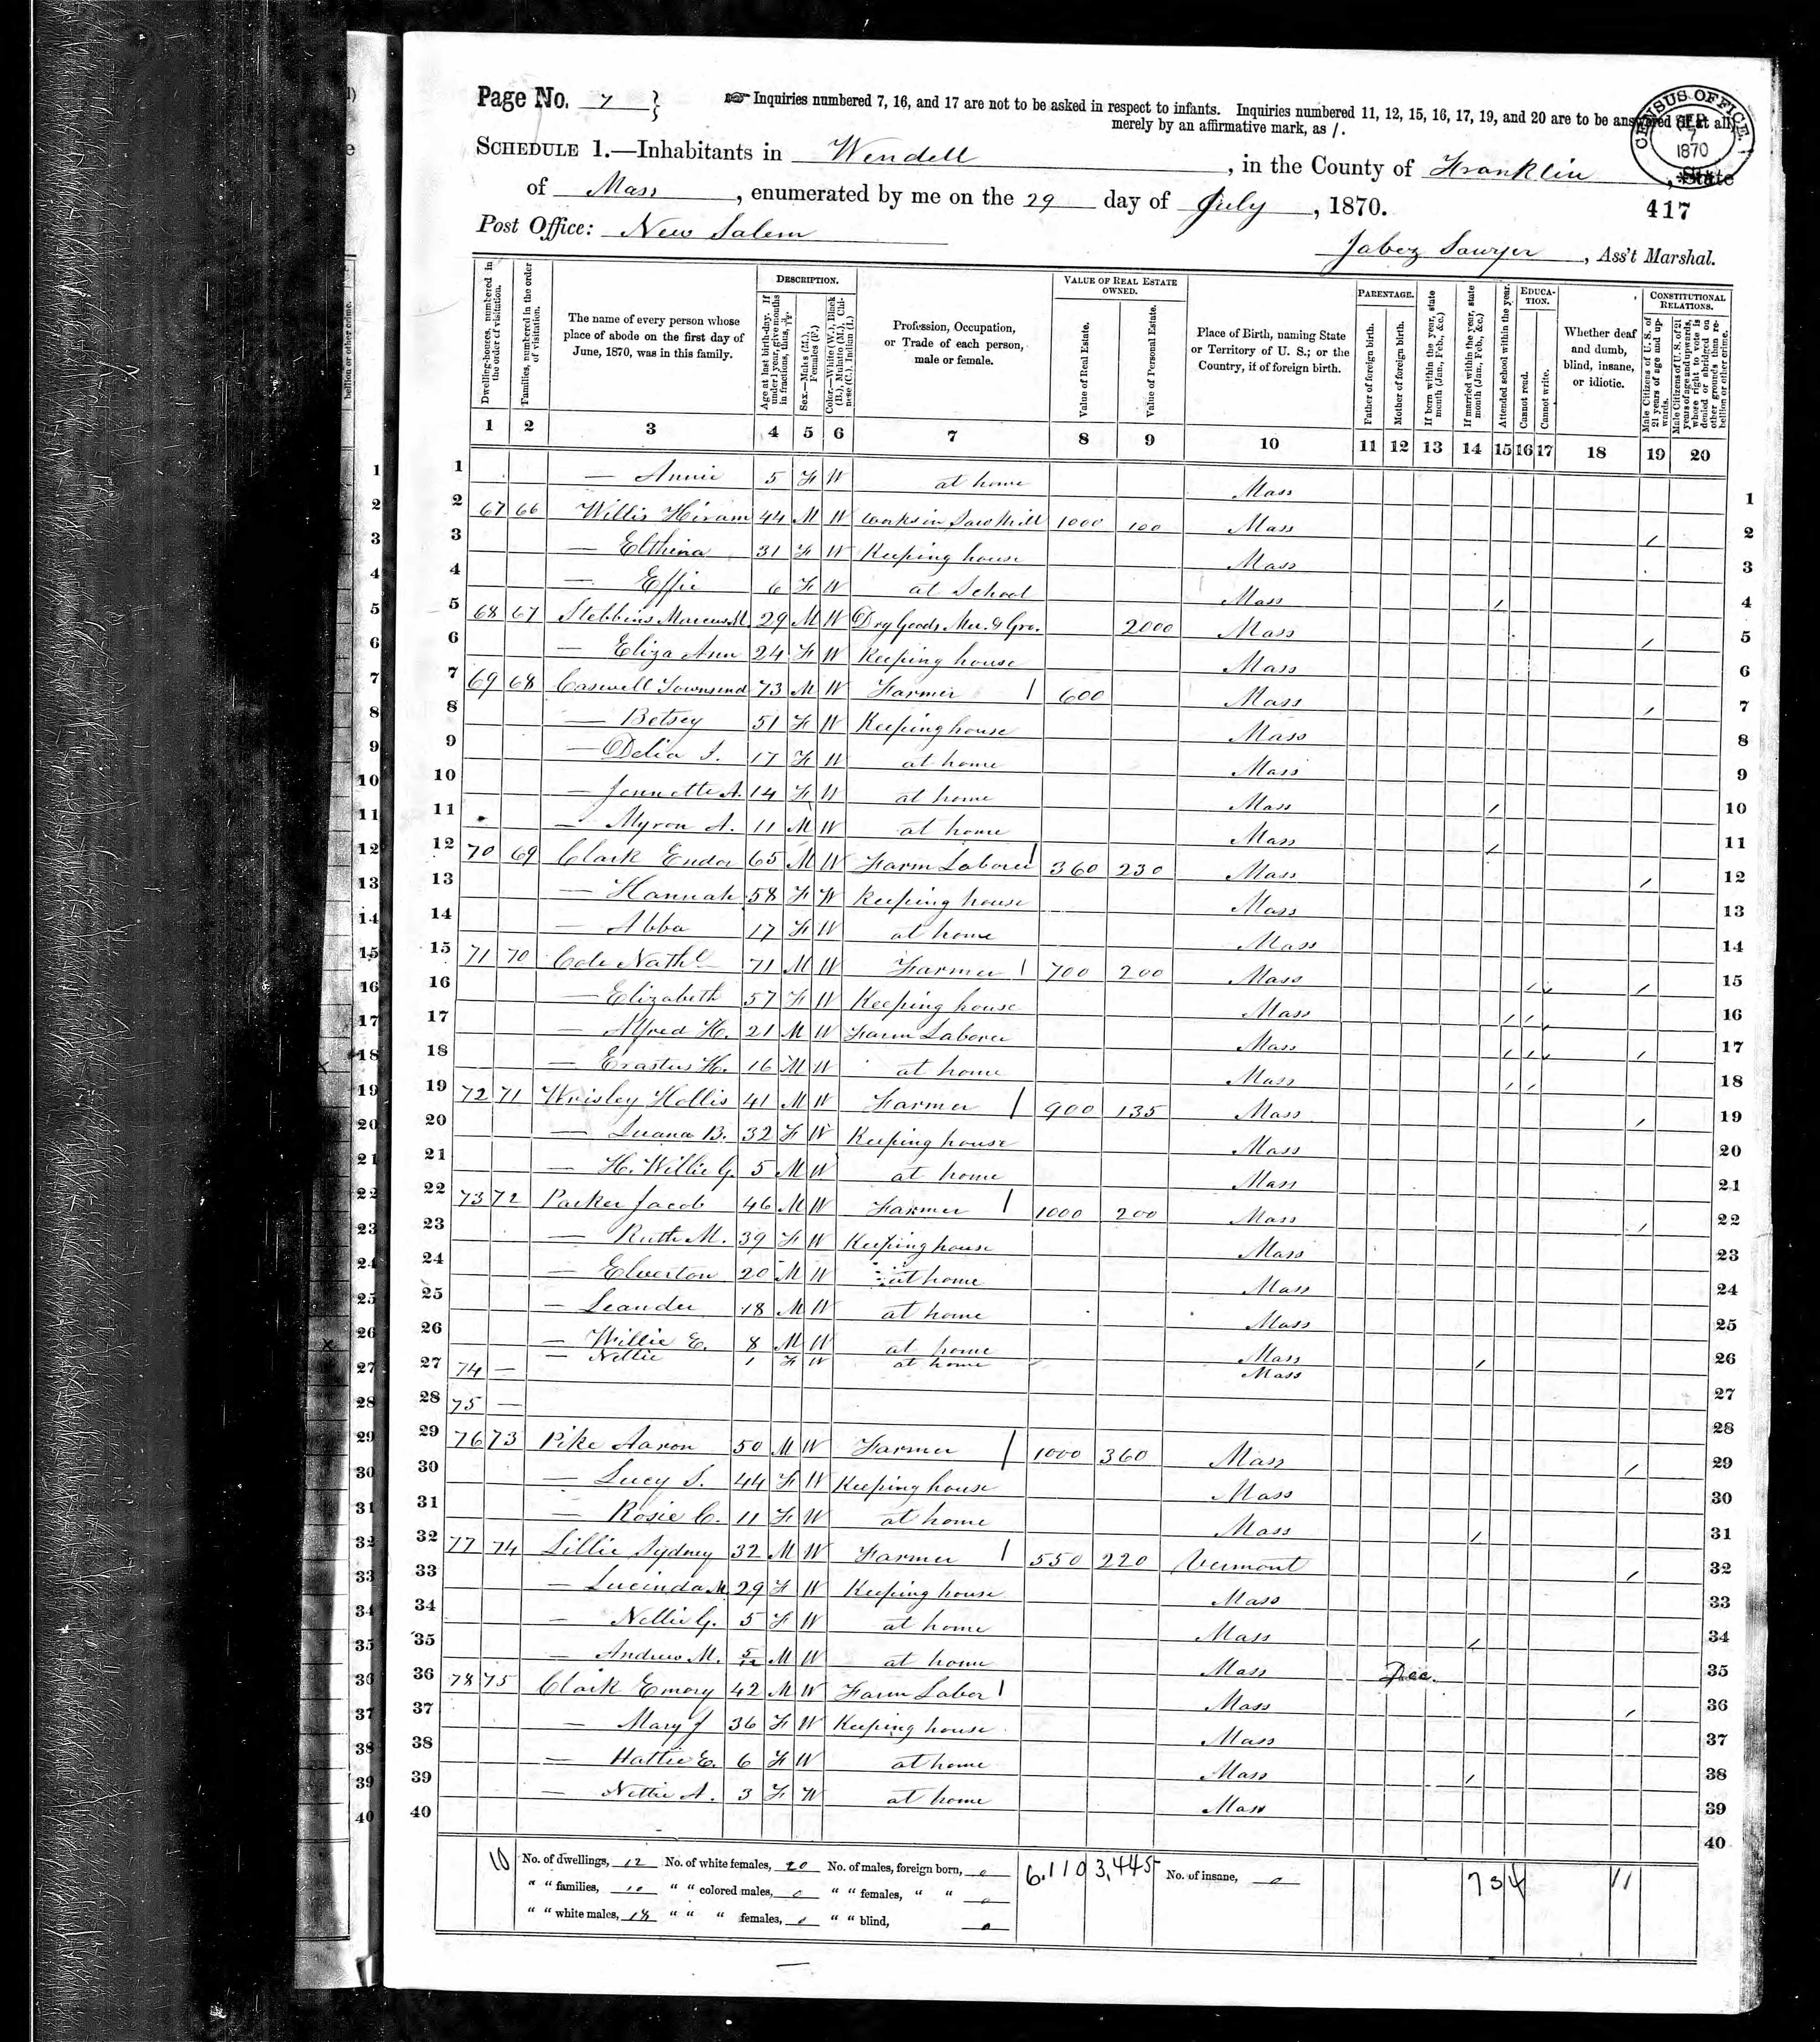 Page No. 7
Inquiries numbered 7, 16, and 17 are not to be asked in respect to infants. Inquiries numbered 11, 12, 15, 16, 17, 19, and 20 are to be answered (if at all)
merely by an affirmative mark, as /.
CENSUS OFFICE. SEP 7 1870
SCHEDULE 1.—Inhabitants in Wendell, in the County of Franklin, State
of Mass, enumerated by me on the 29 day of July, 1870.
417
Post Office: New Salem
Jabez Sawyer, Ass't Marshal.
Dwelling-houses, numbered in the order of visitation.
Families, numbered in the order of visitation.
The name of every person whose place of abode on the first day of June, 1870, was in this family.
DESCRIPTION.
Age at last birth-day. If under 1 year, give months in fractions, thus, 3/12.
Sex.—Males (M.), Females (F.)
Color.—White (W.), Black (B.), Mulatto (M.), Chinese (C.), Indian (I.)
Profession, Occupation, or Trade of each person, male or female.
VALUE OF REAL ESTATE OWNED.
Value of Real Estate.
Value of Personal Estate.
Place of Birth, naming State or Territory of U. S.; or the Country, if of foreign birth.
PARENTAGE.
Father of foreign birth.
Mother of foreign birth.
If born within the year, state month (Jan., Feb., &c.)
If married within the year, state month (Jan., Feb., &c.)
Attended school within the year.
EDUCATION.
Cannot read.
Cannot write.
Whether deaf and dumb, blind, insane, or idiotic.
CONSTITUTIONAL RELATIONS.
Male Citizens of U. S. of 21 years of age and upwards.
Male Citizens of U. S. of 21 years of age and upwards, where right to vote is denied or abridged on other grounds than rebellion or other crime.
1 2 3 4 5 6 7 8 9 10 11 12 13 14 15 16 17 18 19 20
1 — Annie 5 F W at home Mass 1
2 67 66 Willis Hiram 44 M W Works in Saw Mill 1000 100 Mass / 2
3 — Elthina 31 F W Keeping house Mass 3
4 — Effie 6 F W at School Mass / 4
5 68 67 Stebbins Marcus M. 29 M W Dry Goods Mer. & Gro. 2000 Mass / 5
6 — Eliza Ann 24 F W Keeping house Mass 6
7 69 68 Casewell Townsend 73 M W Farmer / 600 Mass / 7
8 — Betsey 51 F W Keeping house Mass 8
9 — Delia J. 17 F W at home Mass 9
10 — Jennette A. 14 F W at home Mass / 10
11 — Myron A. 11 M W at home Mass / 11
12 70 69 Clark Endor 65 M W Farm Laborer / 360 230 Mass / 12
13 — Hannah 58 F W Keeping house Mass 13
14 — Abba 17 F W at home Mass 14
15 71 70 Cole Nathl 71 M W Farmer / 700 200 Mass / / / 15
16 — Elizabeth 57 F W Keeping house Mass / / 16
17 — Alfred H. 21 M W Farm Laborer Mass / / / / 17
18 — Erastus H. 16 M W at home Mass / / 18
19 72 71 Wrisley Hollis 41 M W Farmer / 900 135 Mass / 19
20 — Luana B. 32 F W Keeping house Mass 20
21 — H. Willie G. 5 M W at home Mass 21
22 73 72 Parker Jacob 46 M W Farmer / 1000 200 Mass / 22
23 — Ruth M. 39 F W Keeping house Mass 23
24 — Elverton 20 M W at home Mass 24
25 — Leander 18 M W at home Mass 25
26 — Willie E. 8 M W at home Mass / 26
— Nettie 1 F W at home Mass
27 74 — 27
28 75 — 28
29 76 73 Pike Aaron 50 M W Farmer / 1000 360 Mass / 29
30 — Lucy S. 44 F W Keeping house Mass 30
31 — Rosie C. 11 F W at home Mass / 31
32 77 74 Lillie Sydney 32 M W Farmer / 550 220 Vermont / 32
33 — Lucinda M 29 F W Keeping house Mass 33
34 — Nellie G. 5 F W at home Mass / 34
35 — Andrew M. 5/12 M W at home Mass Dec. 35
36 78 75 Clark Emory 42 M W Farm Labor / Mass / 36
37 — Mary J 36 F W Keeping house Mass 37
38 — Hattie E. 6 F W at home Mass / 38
39 — Nettie A. 3 F W at home Mass 39
40 40
10 No. of dwellings, 12 No. of white females, 20 No. of males, foreign born, 0 6,110 3,445 No. of insane, 0 7 3 4 11
" " families, 10 " " colored males, 0 " " females, " " 0
" " white males, 18 " " " females, 0 " " blind, 0